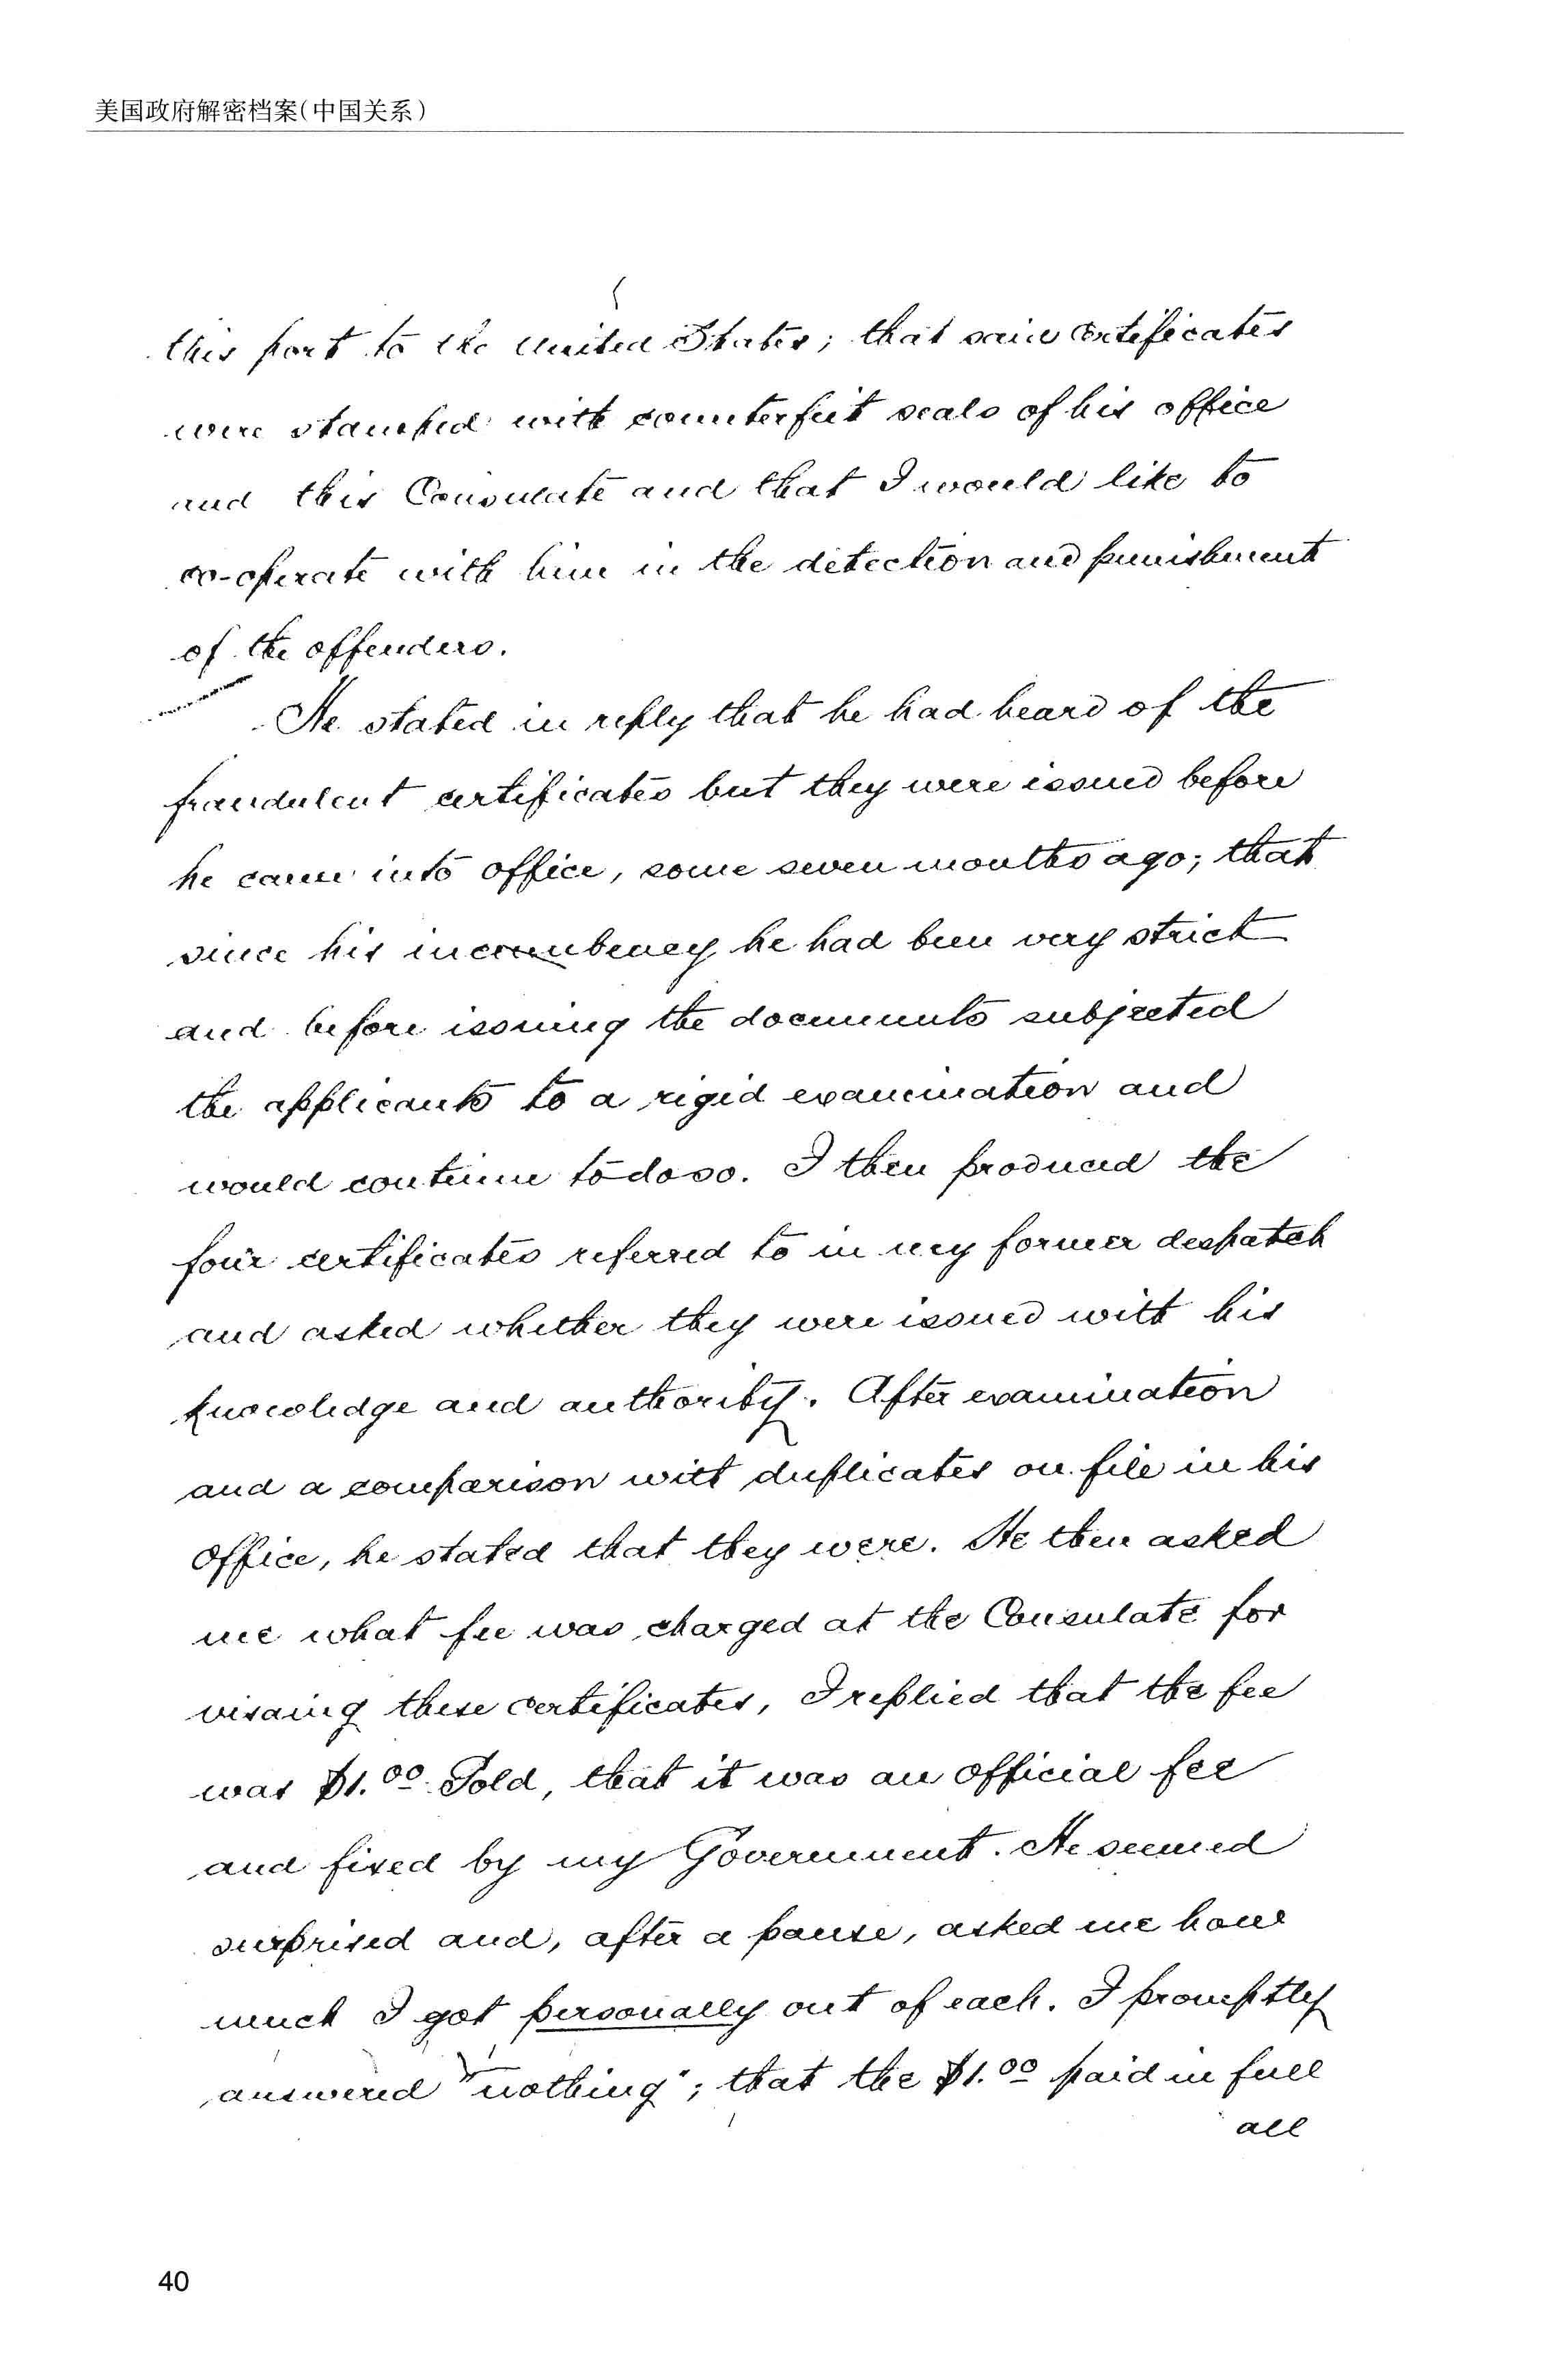 美国政府解密档案(中国关系)
this port to the United States; that said certificates
were stamped with counterfeit seals of his office
and this Consulate and that I would like to
co-operate with him in the detection and punishment
of the offenders.
He stated in reply that he had heard of the
fraudulent certificates but they were issued before
he came into office, some seven months ago; that
since his incumbency he had been very strict
and before issuing the documents subjected
the applicants to a rigid examination and
would continue to do so. I then produced the
four certificates referred to in my former despatch
and asked whether they were issued with his
knowledge and authority. After examination
and a comparison with duplicates on file in his
office, he stated that they were. He then asked
me what fee was charged at the Consulate for
visaing these certificates, I replied that the fee
was $1.00 Gold, that it was an official fee
and fixed by my Government. He seemed
surprised and, after a pause, asked me how
much I got personally out of each. I promptly
answered "nothing"; that the $1.00 paid in full
all
40